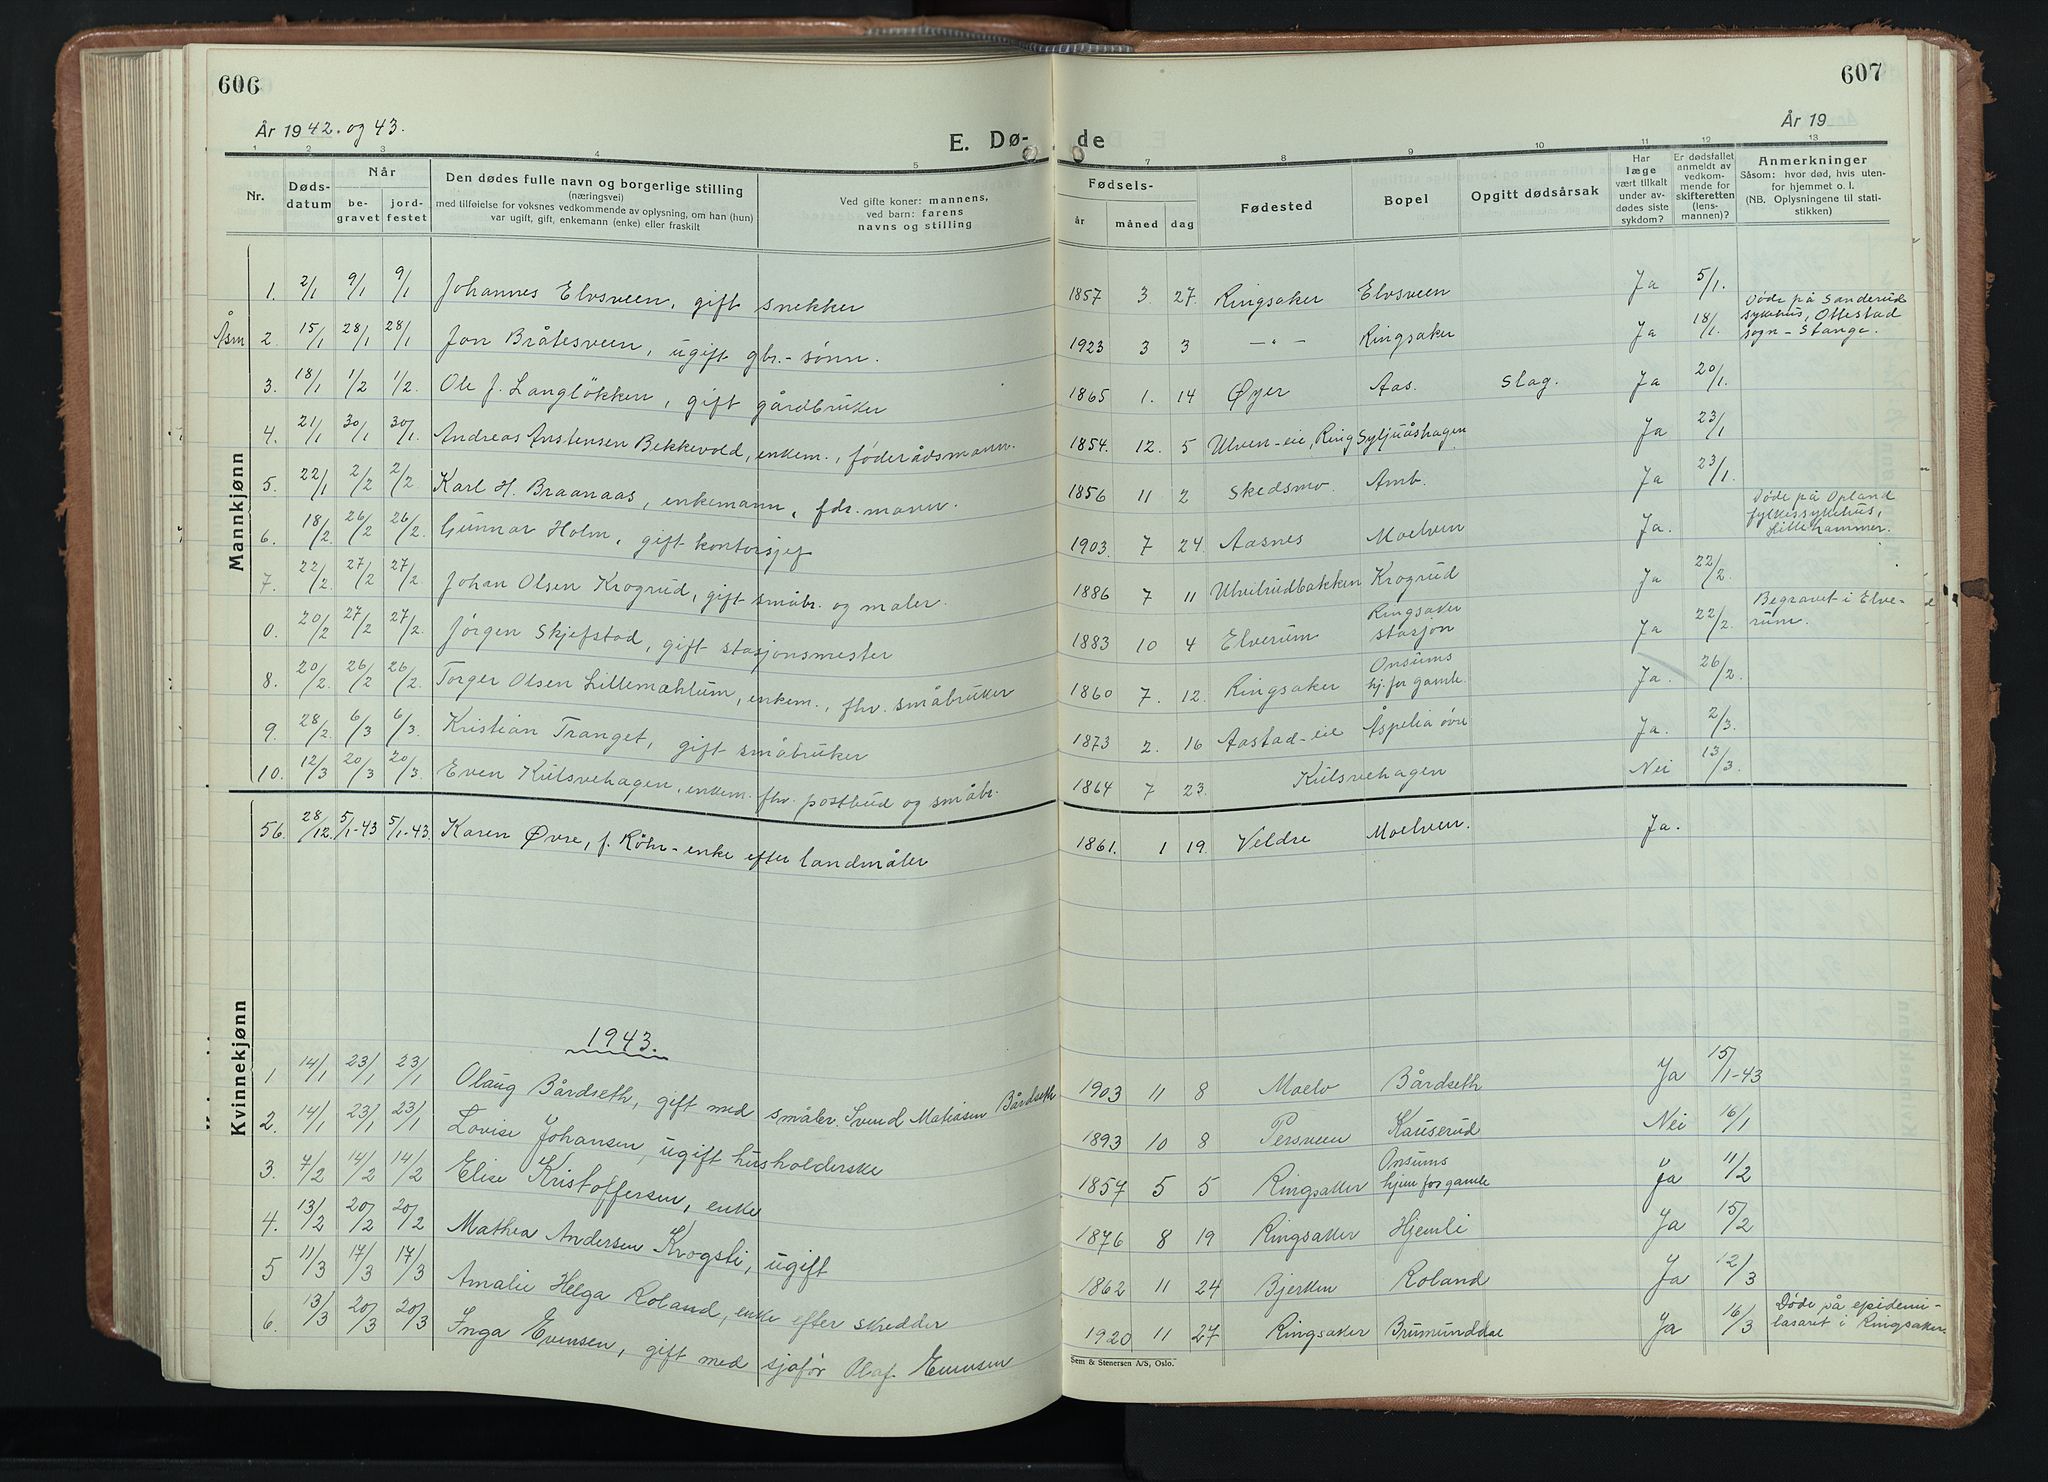 606
607
År 1942. og 43.
År 19
E. Dø- de
1 2 3 4 5 7 8 9 10 11 12 13
Nr.
Døds-
datum
Når
be-
gravet
jord-
festet
Den dødes fulle navn og borgerlige stilling
(næringsvei)
med tilføielse for voksnes vedkommende av oplysning, om han (hun)
var ugift, gift, enkemann (enke) eller fraskilt
Ved gifte koner: mannens,
ved barn: farens
navns og stilling
Fødsels-
år måned dag
Fødested
Bopel
Opgitt dødsårsak
Har
læge
vært tilkalt
under av-
dødes siste
sykdom?
Er dødsfallet
anmeldt av
vedkom-
mende for
skifteretten
(lens-
mannen)?
Anmerkninger
Såsom: hvor død, hvis uten-
for hjemmet o. l.
(NB. Oplysningene til stati-
stikken)
Mannkjønn
1. 2/1 9/1 9/1 Johannes Elvsveen, gift snekker 1857 3. 27. Ringsaker Elvsveen Ja 5/1.
Åsm 2. 15/1 28/1 28/1 Jon Bråtesveen, ugift gbr.-sønn. 1923 3 3 — " — Ringsaker Ja 18/1. Døde på Sanderud
sykehus, Ottestad
sogn - Stange.
3. 18/1 1/2 1/2. Ole J. Langløkken, gift gårdbruker 1865 1. 14 Øyer Aas. Slag. Ja 20/1.
4. 21/1 30/1 30/1. Andreas Anstensen Bekkevold, enkem., føderådsmann. 1854. 12. 5 Ulven-eie, Ring Syljuåshagen Ja 23/1
5. 22/1 2/2 2/2. Karl H. Braanaas, enkemann, fdr. mann. 1856 11 2 Skedsmo. Amb. Ja 23/1.
6. 18/2. 26/2 26/2. Gunnar Holm, gift kontorsjef 1903. 7 24. Aasnes Moelven Ja. Døde på Opland
fylkessykehus,
Lillehammer.
7. 22/2. 27/2 27/2. Johan Olsen Krogrud, gift småbr. og maler. 1886 7 11 Ulvilrudbakken Krogrud Ja 22/2.
0. 20/2 27/2 27/2. Jörgen Skjefstad, gift stasjonsmester 1883 10 4 Elverum Ringsaker
stasjon Ja 22/2. Begravet i Elve-
rum.
8. 20/2. 26/2 26/2. Torger Olsen Lillemæhlum, enkem., fhv. småbruker 1860 7. 12. Ringsaker Onsums
hj. for gamle. Ja. 26/2.
9. 28/2. 6/3 6/3. Kristian Tranget, gift småbruker 1873 2. 16 Aastad-eie Åspelia øvre Ja. 2/3.
10. 12/3 20/3 20/3. Even Kulsvehagen, enkem. fhv. postbud og småbr. 1864 7 23. Kulsvehagen Nei 13/3.
Kvinnekjønn
56. 28/12. 5/1-43 5/1-43. Karen Øvre, f. Röhr - enke efter landmåler 1861. 1 19. Veldre Moelven. Ja.
1943.
1 14/1 23/1 23/1 Olaug Bårdseth, gift med småbr. Svend Matiasen Bårdseth 1903 11 8 Moelv Bårdseth Ja 15/1-43
2. 14/1 23/1 23/1 Lovise Johansen, ugift husholderske 1893 10 8 Persveen Kauserud Nei 16/1
3. 7/2 14/2 14/2 Elise Kristoffersen, enke 1857 5 5 Ringsaker Onsums
hjem for gamle Ja 11/2
4. 13/2 20/2 20/2 Mathea Andersen Krogsti, ugift 1876 8 19 Ringsaker Hjemli Ja 15/2
5 11/3 17/3 17/3 Amalie Helga Roland, enke efter skredder 1862 11 24 Bjerken Roland Ja 12/3
6. 13/3 20/3 20/3 Inga Evensen, gift med sjafør Olaf Evensen 1920 11 27 Ringsaker Brumunddal Ja 16/3 Døde på epidemi-
lasaret i Ringsaker.
Sem & Stenersen A/S, Oslo.